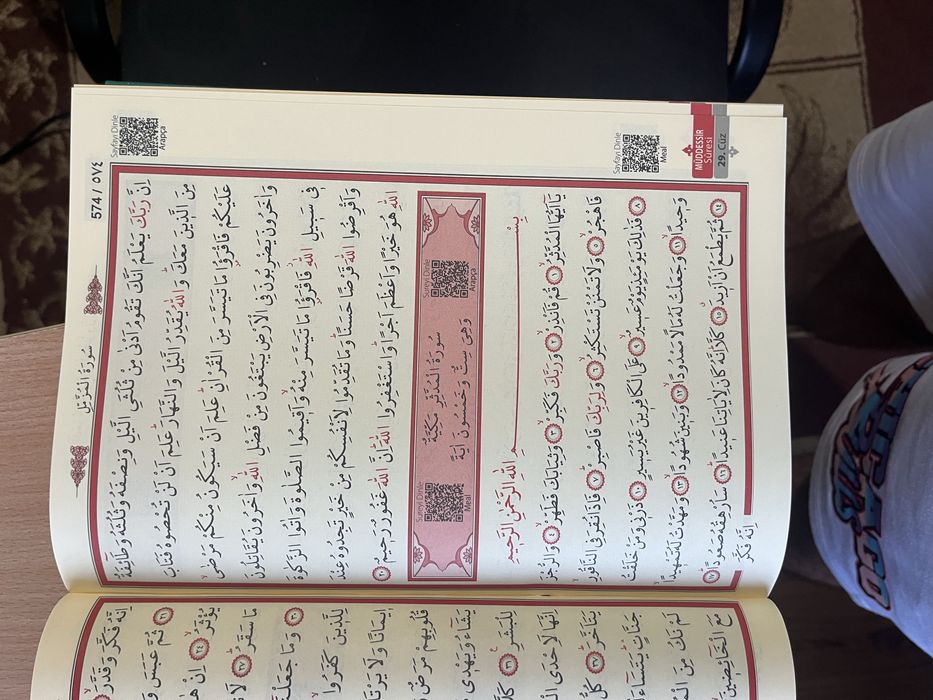 574 / ٥٧٤
سُورَةُ الْمُزَّمِّلِ
Sayfayı Dinle
Arapça
Sayfayı Dinle
Meal
MÜDDESSİR
Sûresi
29. Cüz
اِنَّ رَبَّكَ يَعْلَمُ اَنَّكَ تَقُومُ اَدْنٰى مِنْ ثُلُثَىِ الَّيْلِ وَنِصْفَهُ وَثُلُثَهُ وَطَٓائِفَةٌ
مِنَ الَّذٖينَ مَعَكَ وَاللّٰهُ يُقَدِّرُ الَّيْلَ وَالنَّهَارَ عَلِمَ اَنْ لَنْ تُحْصُوهُ فَتَابَ
عَلَيْكُمْ فَاقْرَؤُا مَا تَيَسَّرَ مِنَ الْقُرْاٰنِ عَلِمَ اَنْ سَيَكُونُ مِنْكُمْ مَرْضٰى
وَاٰخَرُونَ يَضْرِبُونَ فِى الْاَرْضِ يَبْتَغُونَ مِنْ فَضْلِ اللّٰهِ وَاٰخَرُونَ يُقَاتِلُونَ
فٖى سَبٖيلِ اللّٰهِ فَاقْرَؤُا مَا تَيَسَّرَ مِنْهُ وَاَقٖيمُوا الصَّلٰوةَ وَاٰتُوا الزَّكٰوةَ
وَاَقْرِضُوا اللّٰهَ قَرْضًا حَسَنًا وَمَا تُقَدِّمُوا لِاَنْفُسِكُمْ مِنْ خَيْرٍ تَجِدُوهُ عِنْدَ
اللّٰهِ هُوَ خَيْرًا وَاَعْظَمَ اَجْرًا وَاسْتَغْفِرُوا اللّٰهَ اِنَّ اللّٰهَ غَفُورٌ رَحٖيمٌ ٢٠
Sureyi Dinle
Arapça
سُورَةُ الْمُدَّثِّرِ مَكِّيَّةٌ
وَهِىَ سِتٌّ وَخَمْسُونَ اٰيَةً
Sureyi Dinle
Meal
بِسْمِ اللّٰهِ الرَّحْمٰنِ الرَّحٖيمِ
يَٓا اَيُّهَا الْمُدَّثِّرُ ١ قُمْ فَاَنْذِرْ ٢ وَرَبَّكَ فَكَبِّرْ ٣ وَثِيَابَكَ فَطَهِّرْ ٤ وَالرُّجْزَ
فَاهْجُرْ ٥ وَلَا تَمْنُنْ تَسْتَكْثِرُ ٦ وَلِرَبِّكَ فَاصْبِرْ ٧ فَاِذَا نُقِرَ فِى النَّاقُورِ
٨ فَذٰلِكَ يَوْمَئِذٍ يَوْمٌ عَسٖيرٌ ٩ عَلَى الْكَافِرٖينَ غَيْرُ يَسٖيرٍ ١٠ ذَرْنٖى وَمَنْ خَلَقْتُ
وَحٖيدًا ١١ وَجَعَلْتُ لَهُ مَالًا مَمْدُودًا ١٢ وَبَنٖينَ شُهُودًا ١٣ وَمَهَّدْتُ لَهُ تَمْهٖيدًا
١٤ ثُمَّ يَطْمَعُ اَنْ اَزٖيدَ ١٥ كَلَّا اِنَّهُ كَانَ لِاٰيَاتِنَا عَنٖيدًا ١٦ سَاُرْهِقُهُ صَعُودًا ١٧
اِنَّهُ فَكَّرَ
اِنَّهُ فَكَّرَ وَقَدَّرَ
٢١ ثُمَّ عَبَسَ وَ
يُؤْثَرُ ٢٤ اِنْ هٰ
مَا سَقَرُ ٢٧ لَا
٣٠ وَمَا جَعَلْنَٓا
لِلَّذٖينَ كَفَرُوا
اٖيمَانًا وَلَا يَرْتَا
قُلُوبِهِمْ مَرَضٌ
يَشَٓاءُ وَيَهْدٖى
لِلْبَشَرِ ٣١ كَلَّا
اِنَّهَا لَاِحْدَى الْ
يَتَاَخَّرَ ٣٧ كُلُّ
جَنَّاتٍ يَتَسَٓاءَ
لَمْ نَكُ مِنَ الْمُ
مَعَ الْخَٓائِضٖينَ